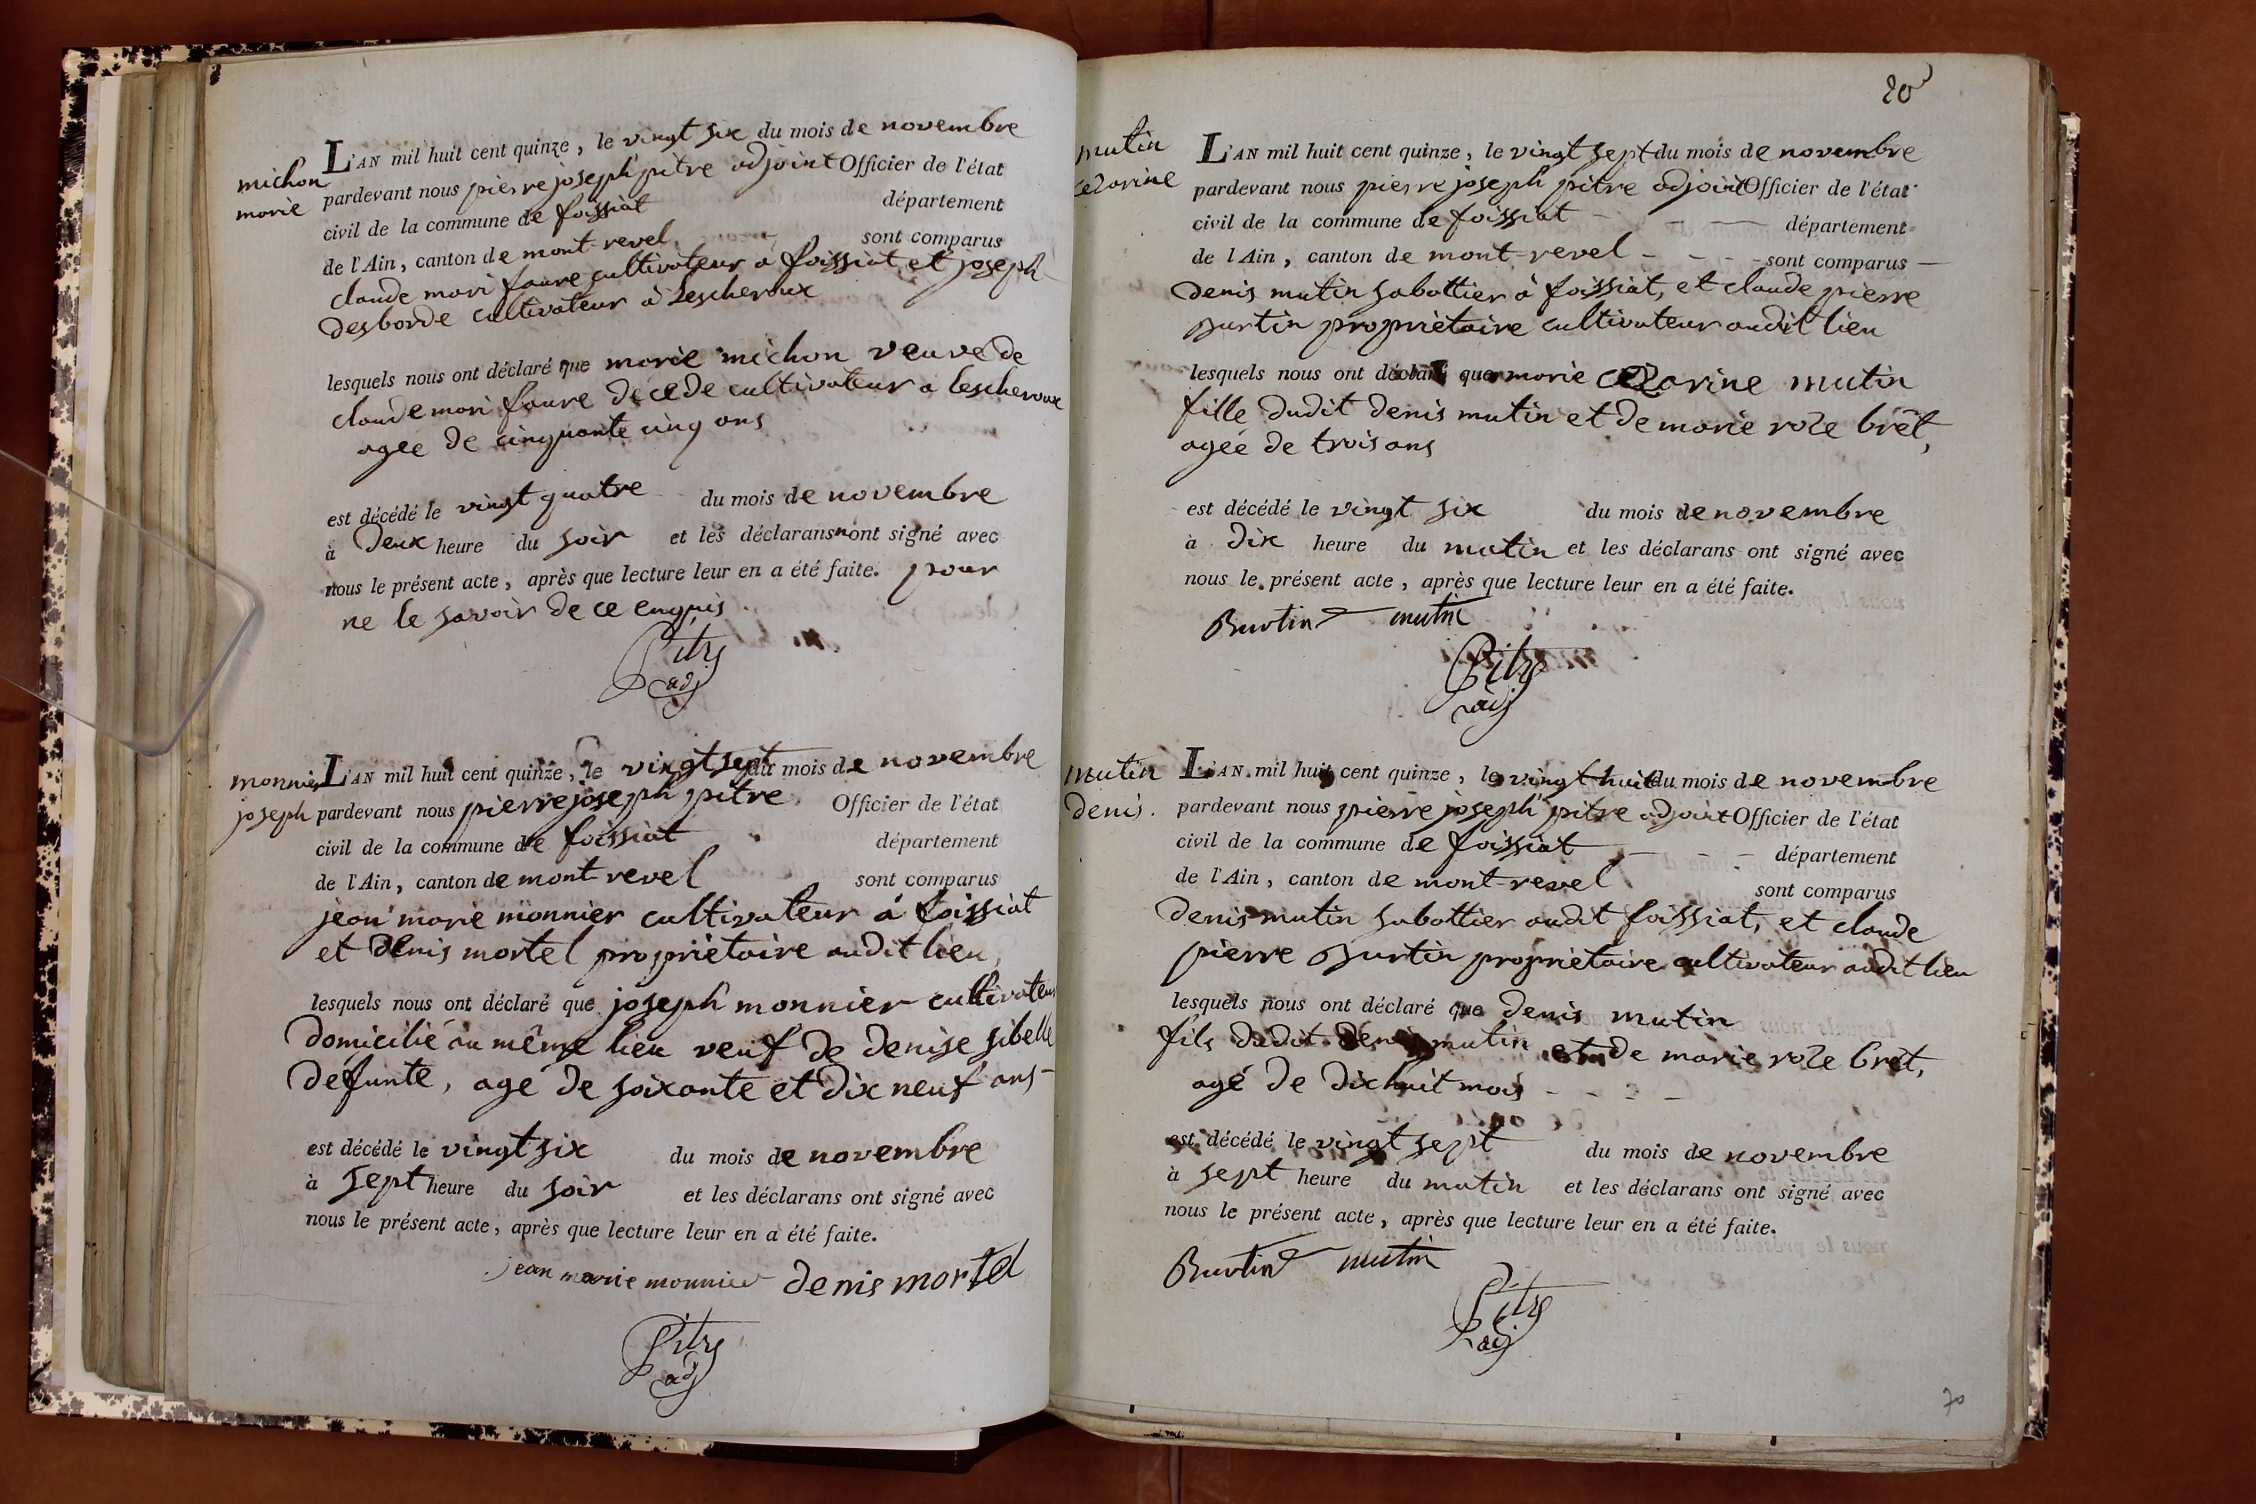 michon
marie
L'AN mil huit cent quinze, le vingt six du mois de novembre
pardevant nous pierre joseph pitre adjoint Officier de l'état
civil de la commune de foissiat département
de l'Ain, canton de mont-revel sont comparus
claude mari faure cultivateur a foissiat, et joseph
desborde cultivateur à Lescheroux
lesquels nous ont déclaré que marie michon veuve de
claude mari faure décédé cultivateur a lescheroux
agee de cinquante cinq ans
est décédé le vingt quatre du mois de novembre
à deux heure du soir et les déclarans n'ont signé avec
nous le présent acte, après que lecture leur en a été faite. pour
ne le savoir de ce enquis
Pitre
adj
monnier
joseph
L'AN mil huit cent quinze, le vingt sept du mois de novembre
pardevant nous pierre joseph pitre Officier de l'état
civil de la commune de foissiat département
de l'Ain, canton de mont-revel sont comparus
jean marie monnier cultivateur á foissiat
et denis mortel propriétaire audit lieu,
lesquels nous ont déclaré que joseph monnier cultivateur
domicilié au même lieu veuf de denise sibelle
defunte, agé de soixante et dix neuf ans
est décédé le vingt six du mois de novembre
à sept heure du soir et les déclarans ont signé avec
nous le présent acte, après que lecture leur en a été faite.
jean marie monnier denis mortel
Pitre
adj
20
mutin
cezarine
L'AN mil huit cent quinze, le vingt sept du mois de novembre
pardevant nous pierre joseph pitre adjoint Officier de l'état
civil de la commune de foissiat département
de l'Ain, canton de mont-revel sont comparus
denis mutin sabottier à foissiat, et claude pierre
Burtin propriétaire cultivateur audit lieu
lesquels nous ont déclaré que marie cezarine mutin
fille dudit denis mutin et de marie roze brêt,
agée de trois ans
est décédé le vingt six du mois de novembre
à dix heure du matin et les déclarans ont signé avec
nous le présent acte, après que lecture leur en a été faite.
Burtin mutin
Pitre
adj
mutin
denis.
L'AN mil huit cent quinze, le vingt huit du mois de novembre
pardevant nous pierre joseph pitre adjoint Officier de l'état
civil de la commune de foissiat département
de l'Ain, canton de mont-revel sont comparus
denis mutin sabottier audit foissiat, et claude
pierre Burtin propriétaire cultivateur audit lieu
lesquels nous ont déclaré que denis mutin
fils dudit denis mutin et de marie roze brêt,
agé de dix huit mois
est décédé le vingt sept du mois de novembre
à sept heure du matin et les déclarans ont signé avec
nous le présent acte, après que lecture leur en a été faite.
Burtin mutin
Pitre
adj
70